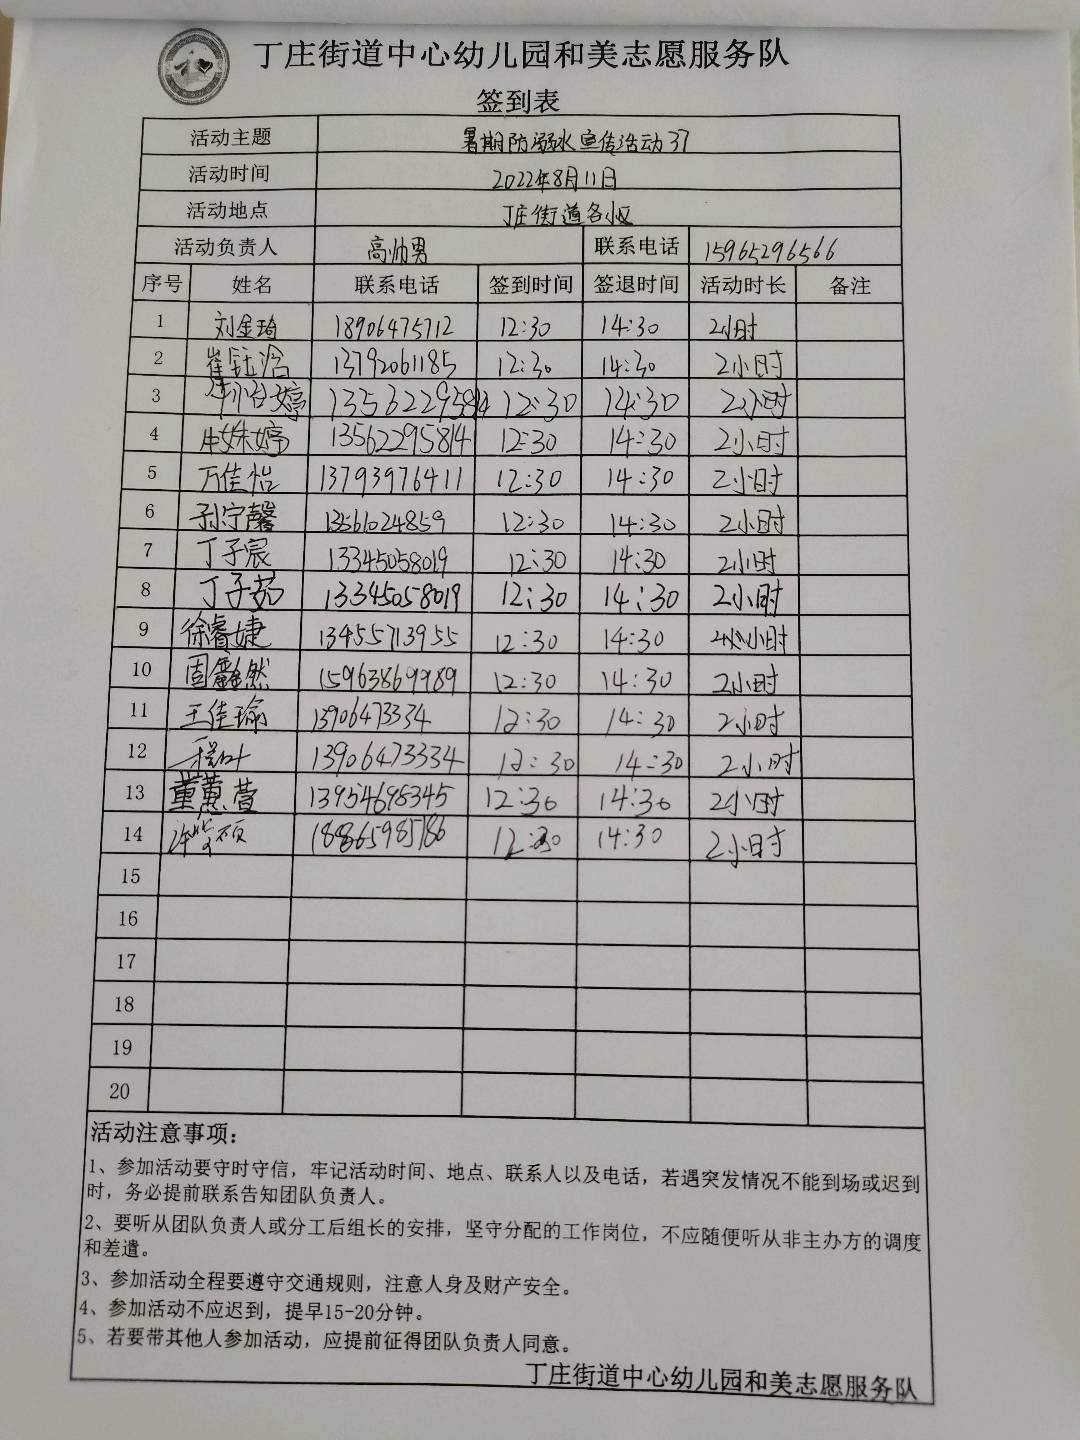 丁庄街道中心幼儿园和美志愿服务队
签到表
活动主题 暑期防溺水宣传活动37
活动时间 2022年8月11日
活动地点 丁庄街道各小区
活动负责人 高帅男 联系电话 15965296566
序号 姓名 联系电话 签到时间 签退时间 活动时长 备注
1 刘金琦 18906475712 12:30 14:30 2小时
2 崔钰涵 13792061185 12:30 14:30 2小时
3 13562295814 12:30 14:30 2小时
4 牛姝婷 13562295814 12:30 14:30 2小时
5 万佳怡 13793976411 12:30 14:30 2小时
6 孙宁馨 13561024859 12:30 14:30 2小时
7 丁子宸 13345058019 12:30 14:30 2小时
8 丁子茹 13345058019 12:30 14:30 2小时
9 徐睿婕 13455713955 12:30 14:30 小时
10 然 15963869989 12:30 14:30 2小时
11 王佳瑜 13906473334 12:30 14:30 2小时
12 13906473334 12:30 14:30 2小时
13 董蕙萱 13954698345 12:30 14:30 2小时
14 18865985786 12:30 14:30 2小时
15
16
17
18
19
20
活动注意事项：
1、参加活动要守时守信，牢记活动时间、地点、联系人以及电话，若遇突发情况不能到场或迟到
时，务必提前联系告知团队负责人。
2、要听从团队负责人或分工后组长的安排，坚守分配的工作岗位，不应随便听从非主办方的调度
和差遣。
3、参加活动全程要遵守交通规则，注意人身及财产安全。
4、参加活动不应迟到，提早15-20分钟。
5、若要带其他人参加活动，应提前征得团队负责人同意。
丁庄街道中心幼儿园和美志愿服务队